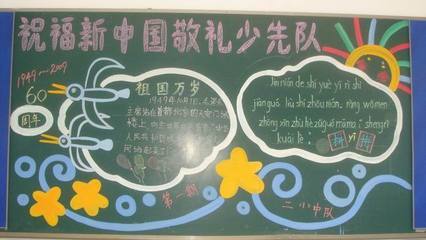 祝福新中国敬礼少先队
1949~2009
60
周年
祖国万岁
主席站在首都北京的天安门城
楼上
人民共和国
jīn nián de shí yuè yī rì shì
jiàn guó liù shí zhōu nián, ràng wǒmen
zhōng xīn zhù hè zǔguó māma shēngrì
kuài lè.
拼 yī 拼
第一期
二小中队